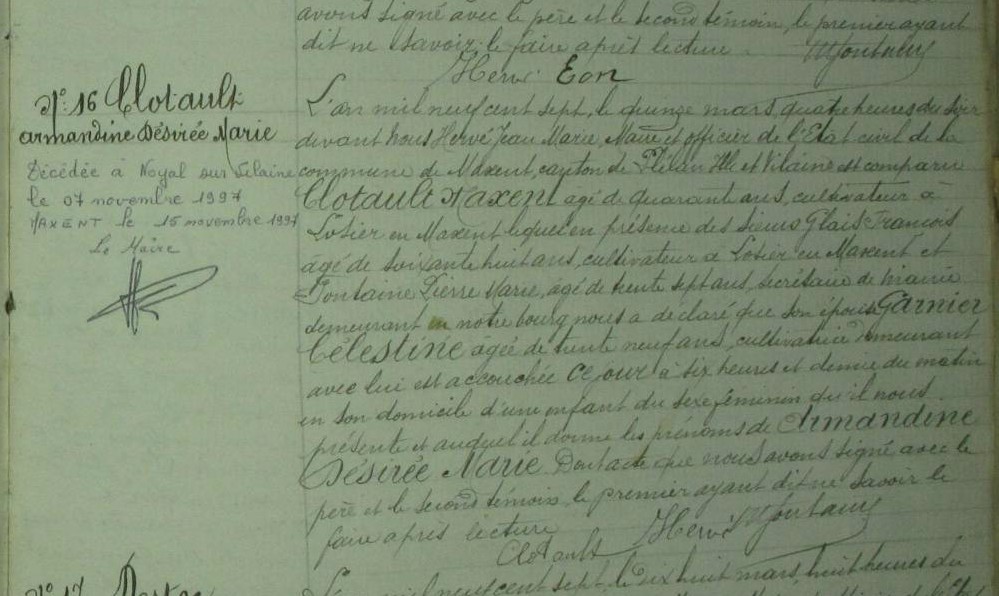 avons signé avec le père et le second témoin, le premier ayant
dit ne savoir le faire après lecture.
Hervé Eon
N°: 16 Clotault
armandine Désirée Marie
Décédée à Noyal sur Vilaine
le 07 novembre 1997
MAXENT le 15 novembre 1997
Le Maire
L'an mil neuf cent sept, le quinze mars, quatre heures du soir
devant Nous Hervé Jean Marie, Maire et officier de l'Etat civil de la
commune de Maxent, canton de Plélan Ille et Vilaine est comparu
Clotault Maxent âgé de quarant ans, cultivateur à
Lotier en Maxent lequel en présence des sieurs Glais François
âgé de soixante huit ans, cultivateur à Lotier en Maxent et
Fontaine Pierre Marie, âgé de trente sept ans, secrétaire de mairie
demeurant en notre bourg nous a declaré que son épouse Garnier
Célestine âgée de trente neuf ans, cultivatrice demeurant
avec lui est accouchée ce jour à six heures et demie du matin
en son domicile d'une enfant du sexe féminin qu'il nous
présente et auquel il donne les prénoms de Armandine
Désirée Marie Dont acte que nous avons signé avec le
père et le second témoin, le premier ayant dit ne savoir le
faire après lecture
Clotault Hervé
N° 17
L'an mil neuf cent sept, le dix huit mars, huit heures du